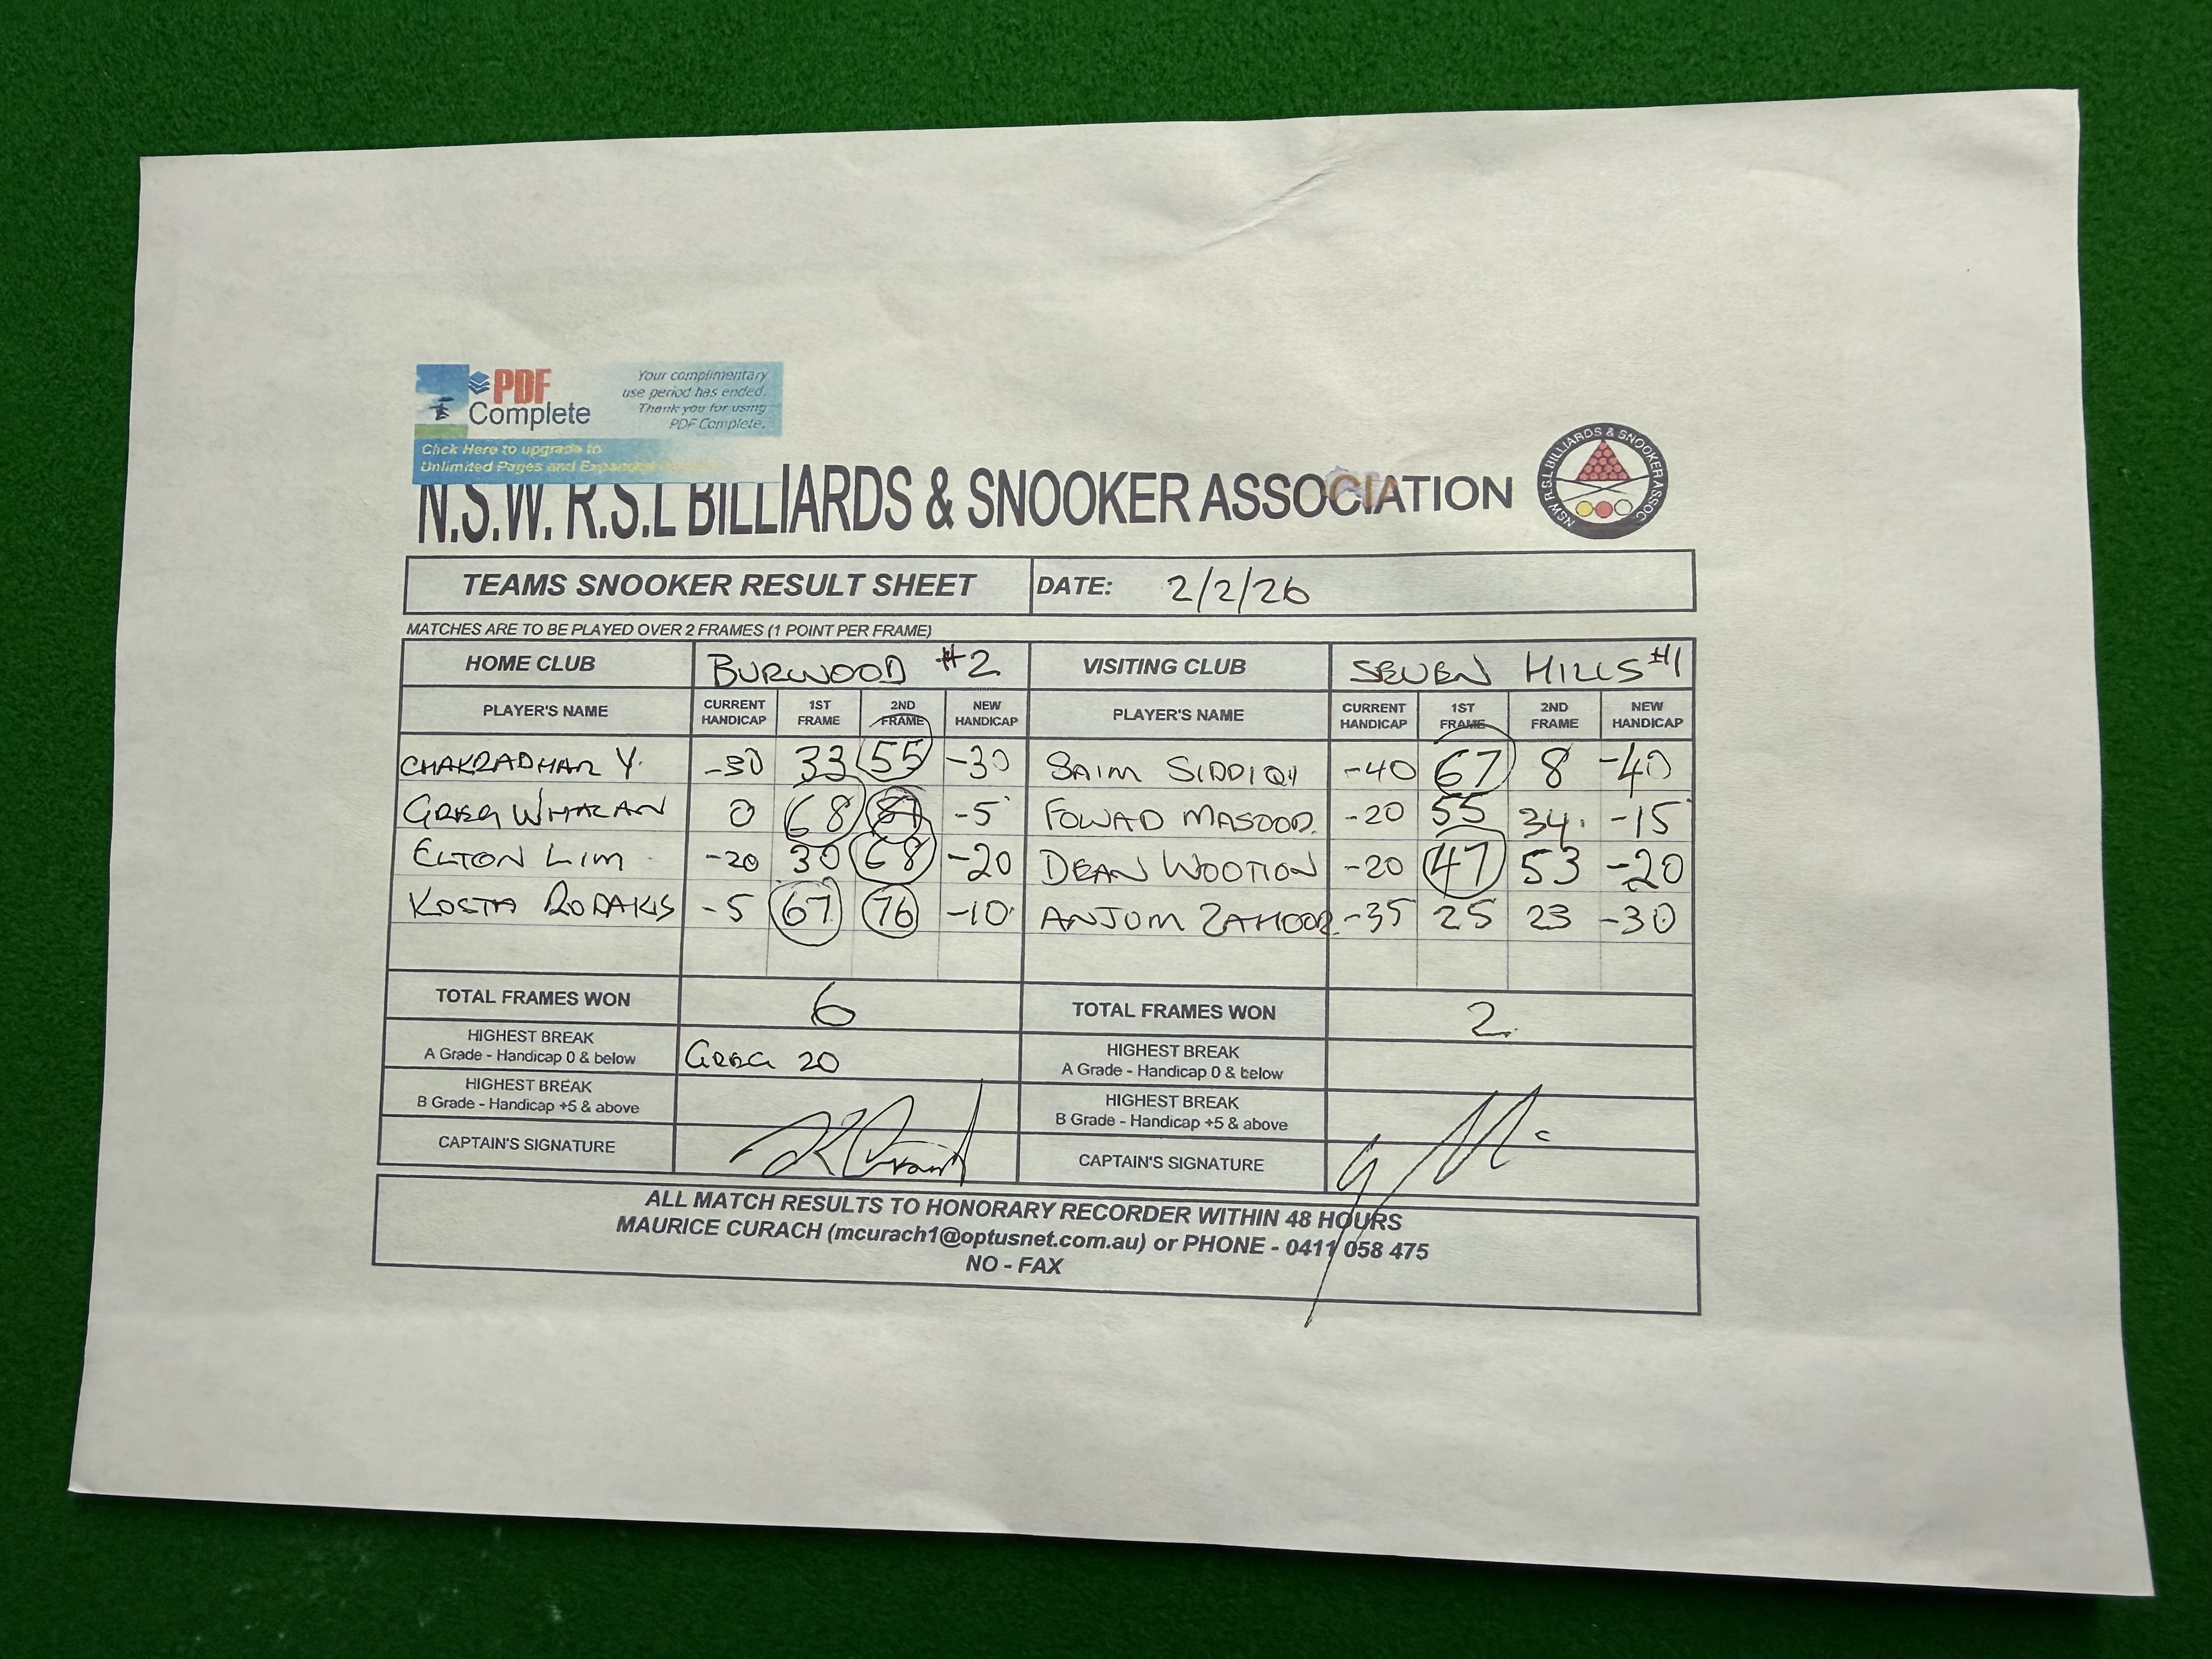 PDF Complete
Your complimentary
use period has ended.
Thank you for using
PDF Complete.
Click Here to upgrade to
Unlimited Pages and Expanded
N.S.W. R.S.L BILLIARDS & SNOOKER ASSOCIATION
NSW R.S.L BILLIARDS & SNOOKER ASSOC.
TEAMS SNOOKER RESULT SHEET DATE: 2/2/26
MATCHES ARE TO BE PLAYED OVER 2 FRAMES (1 POINT PER FRAME)
HOME CLUB BURWOOD #2 VISITING CLUB SEVEN HILLS #1
PLAYER'S NAME CURRENT HANDICAP 1ST FRAME 2ND FRAME NEW HANDICAP PLAYER'S NAME CURRENT HANDICAP 1ST FRAME 2ND FRAME NEW HANDICAP
CHAKRADHAR Y. -30 33 55 -30 SAIM SIDDIQII -40 67 8 -40
GREG WHALAN 0 68 -5 FOWAD MASOOD. -20 55 34. -15
ELTON LIM -20 30 68 -20 DEAN WOOTION -20 47 53 -20
KOSTA RODAKIS -5 67 76 -10 ANJUM ZAHOOR -35 25 23 -30
TOTAL FRAMES WON 6 TOTAL FRAMES WON 2
HIGHEST BREAK
A Grade - Handicap 0 & below GREG 20
HIGHEST BREAK
A Grade - Handicap 0 & below
HIGHEST BREAK
B Grade - Handicap +5 & above
HIGHEST BREAK
B Grade - Handicap +5 & above
CAPTAIN'S SIGNATURE CAPTAIN'S SIGNATURE
ALL MATCH RESULTS TO HONORARY RECORDER WITHIN 48 HOURS
MAURICE CURACH (mcurach1@optusnet.com.au) or PHONE - 0411 058 475
NO - FAX